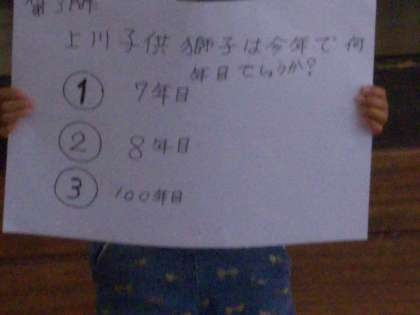 第3問
上川子供獅子は今年で何
年目でしょうか?
① 7年目
② 8年目
③ 100年目